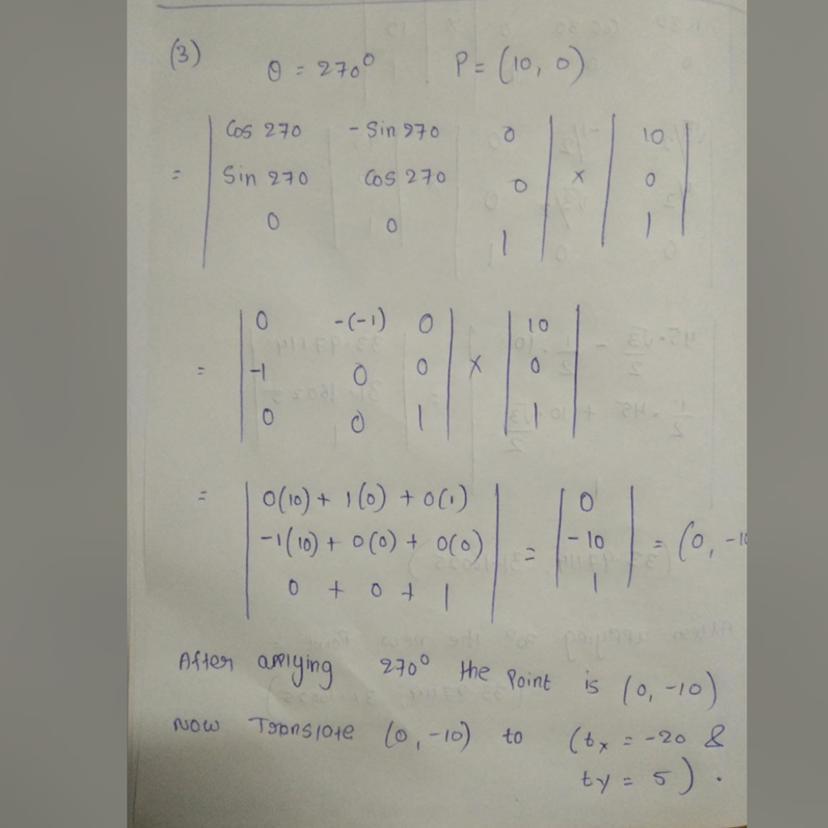 (3) θ = 270° P = (10, 0)
= | Cos 270 - Sin 270 0 | × | 10 |
| Sin 270 Cos 270 0 | | 0 |
| 0 0 1 | | 1 |
= | 0 -(-1) 0 | × | 10 |
| -1 0 0 | | 0 |
| 0 0 1 | | 1 |
= | 0(10) + 1(0) + 0(1) | = | 0 | = (0, -10
| -1(10) + 0(0) + 0(0) | | -10 |
| 0 + 0 + 1 | | 1 |
After applying 270° the point is (0, -10)
Now Translate (0, -10) to (tx = -20 &
ty = 5) .